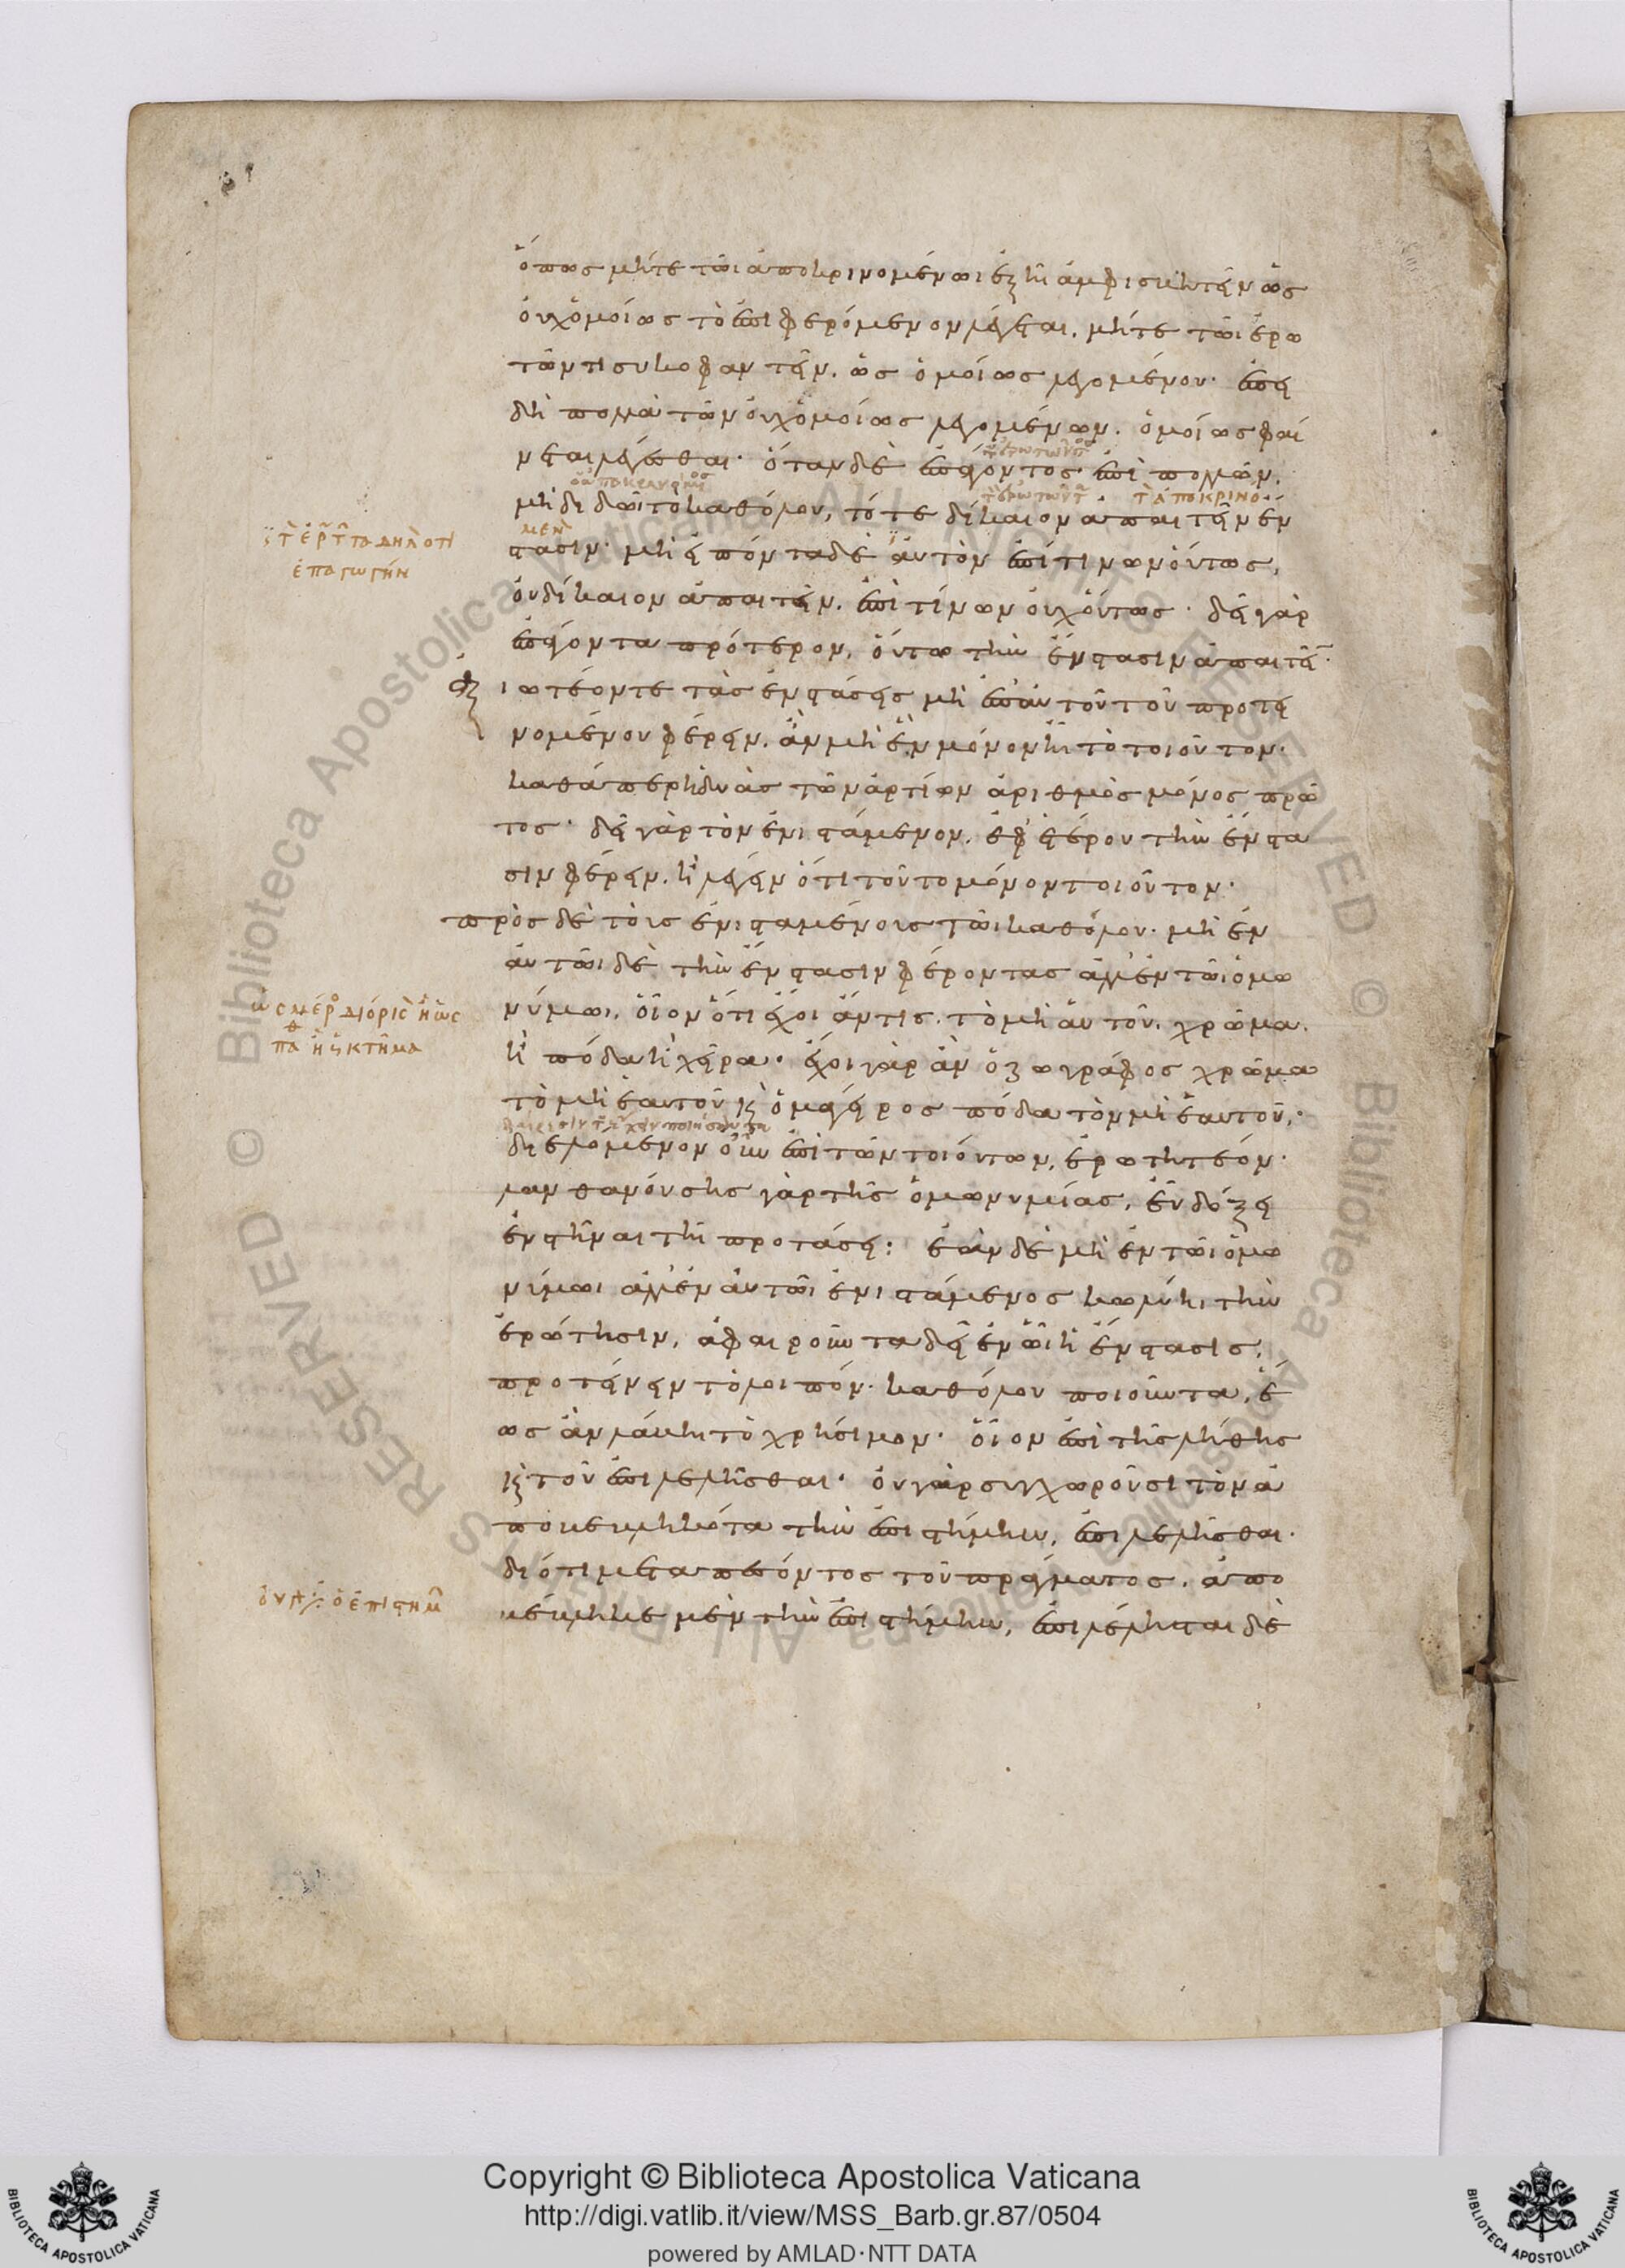 ὅπως μήτε τῶι ἀποκρινομένωι ἐξῆι ἀμφισβητεῖν ὡς
οὐχ ὁμοίως τὸ ἐπιφερόμενον λέγεται. μήτε τῶι ἐρω
τῶντι συκοφαντεῖν. ὡς ὁμοίως λεγομένου· ἐπεὶ
δὴ πολλὰ τῶν οὐχ ὁμοίως λεγομένων. ὁμοίως φαί
νεται λέγεσθαι· ὅταν δὲ ἐπάγοντος ἐπὶ πολλῶν.
μὴ διδῶι τὸ καθόλου, τότε δίκαιον ἀπαιτεῖν ἔν
στασιν· μὴ εἰπόντα δὲ αὐτὸν ἐπὶ τίνων οὕτως,
οὐ δίκαιον ἀπαιτεῖν. ἐπὶ τίνων οὐχ οὕτως· δεῖ γὰρ
ἐπάγοντα πρότερον, οὕτω τὴν ἔνστασιν ἀπαιτεῖ·
ἀξιωτέον τε τὰς ἐνστάσεις μὴ ἐπ' αὐτοῦ τοῦ προτει
νομένου φέρειν. ἂν μὴ ἓν μόνον ἦι τὸ τοιοῦτον·
καθάπερ ἡ δυὰς τῶν ἀρτίων ἀριθμὸς μόνος πρῶ
τος· δεῖ γὰρ τὸν ἐνιστάμενον. ἐφ' ἑτέρου τὴν ἔνστα
σιν φέρειν. ἢ λέγειν ὅτι τοῦτο μόνον τοιοῦτον·
πρὸς δὲ τοὺς ἐνισταμένους τῶι καθόλου· μὴ ἐν
αὐτῶι δὲ τὴν ἔνστασιν φέροντας ἀλλ' ἐν τῶι ὁμω
νύμωι. οἷον ὅτι ἔχοι ἄν τις. τὸ μὴ αὑτοῦ. χρῶμα.
ἢ πόδα ἢ χεῖρα· ἔχοι γὰρ ἂν ὁ ζωγράφος χρῶμα
τὸ μὴ ἑαυτοῦ κ(αὶ) ὁ μάγειρος πόδα τὸν μὴ ἑαυτοῦ·
διελόμενον οὖν ἐπὶ τῶν τοιούτων, ἐρωτητέον·
λανθανούσης γὰρ τῆς ὁμωνυμίας, εὖ δόξει
ἐνστῆναι τῆι προτάσει· ἐὰν δὲ μὴ ἐν τῶι ὁμω
νύμωι ἀλλ' ἐν αὐτῶι ἐνιστάμενος κωλύηι τὴν
ἐρώτησιν, ἀφαιροῦντα δεῖ ἐν ὧι ἡ ἔνστασις,
προτείνειν τὸ λοιπόν· καθόλου ποιοῦντα, ἕ
ως ἂν λάβηι τὸ χρήσιμον· οἷον ἐπὶ τῆς λήθης
κ(αὶ) τοῦ ἐπιλελῆσθαι· οὐ γὰρ συγχωροῦσι τὸν ἀ
ποβεβληκότα τὴν ἐπιστήμην, ἐπιλελῆσθαι·
διότι μεταπεσόντος τοῦ πράγματος. ἀπο
βέβληκε μὲν τὴν ἐπιστήμην, ἐπιλέλησται δὲ
ἐπαγωγήν
Copyright © Biblioteca Apostolica Vaticana
http://digi.vatlib.it/view/MSS_Barb.gr.87/0504
powered by AMLAD·NTT DATA
BIBLIOTECA APOSTOLICA VATICANA
BIBLIOTECA APOSTOLICA VATICANA